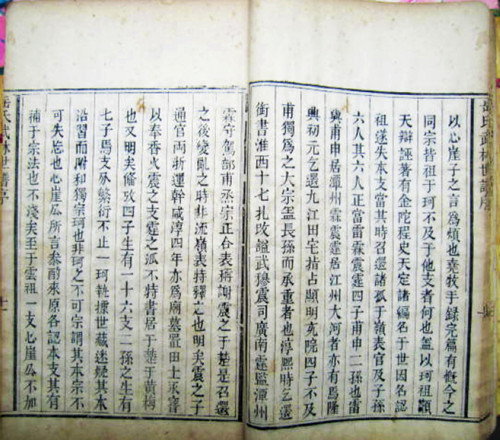 岳氏武林世譜序
以心崖子之言為煩也堯牧手錄完篇有慨今之
同宗皆祖于珂不及于他支者何也盖以珂祖顯
天辯誣著有金陀程史天定諸編名于世因名認
祖遂失本支當其時召還諸孤于嶺表官及子孫
六人其六人正當雷霖震霆四子甫申二孫也雷
與甫申居潭州霖震霆居江州大河者亦有馬隆
興初元乞還九江田宅指占顯明院四子不及
甫獨爲之大宗盖長孫而承重者也淳熙時乞還
銜書淮西十七扎攺諡武穆震司廣南霆監潭州
霖府駕部甫丞宗正合表稱謝震之于楚是召還
之後變亂之時非流嶺表持釋之也明矣震之子
通官两浙運幹咸淳四年亦為廟墓置田土永資
以奉香火震之支霆之派不特書居于楚于黃梅
也又明矣脩攷四子生有一十六支二孫之生有
七子馬支分繁衍不止一珂執據世藏迷其本
沿習而附和獨宗珂也非珂之不可宗謂其本宗不
可失忘也心崖瓜所言叅酌來原各認本支其有
補于宗法也不淺矣至于雲祖一支心崖瓜不加
岳氏武林世譜序
十一